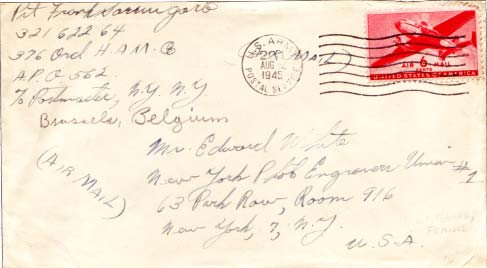 Pvt Frank
321 622 64
376 Ord H.A.M. Co
A.P.O 562
℅ Postmaster, N.Y. N.Y
Brussels, Belgium
(AIR MAIL)
U.S. ARMY
AUG
1945
POSTAL SERVICE
AIR 6 MAIL
CENTS
UNITED STATES OF AMERICA
Mr. Edward White
New York Photo Engravers Union #1
63 Park Row, Room 916
New York, 7, N.Y.
U.S.A.
FRANCE